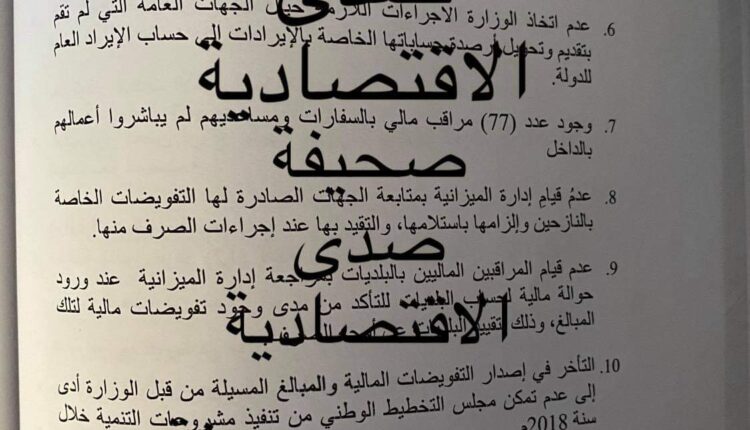 6. عدم اتخاذ الوزارة الاجراءات اللازمة حيال الجهات العامة التي لم تقم
بتقديم وتحويل أرصدة حساباتها الخاصة بالإيرادات إلى حساب الإيراد العام
للدولة.
7. وجود عدد (77) مراقب مالي بالسفارات ومساعديهم لم يباشروا أعمالهم
بالداخل
8. عدمُ قيام إدارة الميزانية بمتابعة الجهات الصادرة لها التفويضات الخاصة
بالنازحين وإلزامها باستلامها، والتقيد بها عند إجراءات الصرف منها.
9. عدم قيام المراقبين الماليين بالبلديات بمراجعة إدارة الميزانية عند ورود
حوالة مالية لحساب البلديات للتأكد من مدى وجود تفويضات مالية لتلك
المبالغ، وذلك بتقييم البلديات
10. التأخر في إصدار التفويضات المالية والمبالغ المسيلة من قبل الوزارة أدى
إلى عدم تمكن مجلس التخطيط الوطني من تنفيذ مشروعات التنمية خلال
سنة 2018م
صدى
الاقتصادية
صحيفة
صدى
الاقتصادية